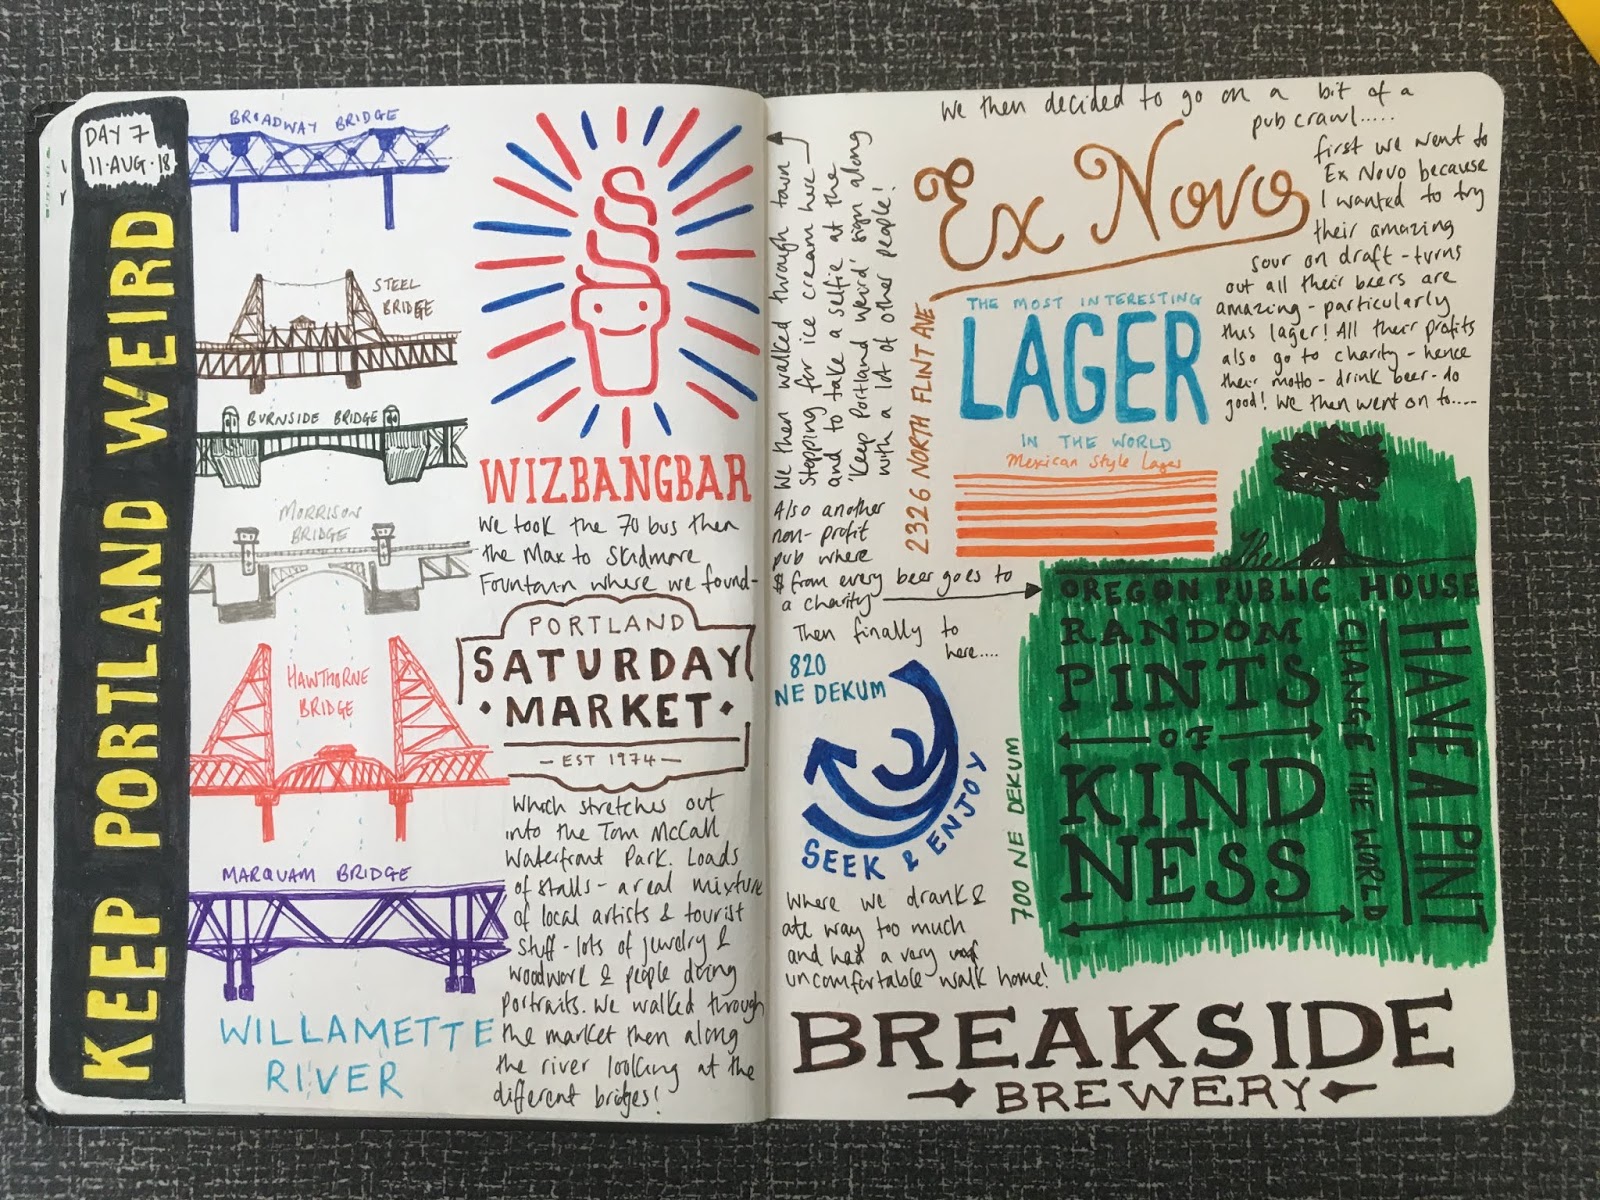 DAY 7
11·AUG·18
KEEP PORTLAND WEIRD
BROADWAY BRIDGE
STEEL
BRIDGE
BURNSIDE BRIDGE
MORRISON
BRIDGE
HAWTHORNE
BRIDGE
MARQUAM BRIDGE
WILLAMETTE
RIVER
WIZBANGBAR
We took the 70 bus then
the Max to Skidmore
Fountain where we found-
PORTLAND
SATURDAY
·MARKET·
— EST 1974 —
Which stretches out
into the Tom McCall
Waterfront Park. Loads
of stalls - a real mixture
of local artists & tourist
stuff - lots of jewelry &
woodwork & people doing
portraits. We walked through
the market then along
the river looking at the
different bridges!
We then walked through town
stopping for ice cream here
and to take a selfie at the
'Keep Portland Weird' sign along
with a lot of other people!
We then decided to go on a bit of a
pub crawl.....
Ex Novo
first we went to
Ex Novo because
I wanted to try
their amazing
sour on draft - turns
out all their beers are
amazing - particularly
this lager! All their profits
also go to charity - hence
their motto - drink beer - do
good! We then went on to.....
2326 NORTH FLINT AVE
THE MOST INTERESTING
LAGER
IN THE WORLD
Mexican Style Lager
Also another
non-profit
pub where
$ from every beer goes to
a charity
The
OREGON PUBLIC HOUSE
RANDOM
PINTS
OF
KIND
NESS
CHANGE THE WORLD
HAVE A PINT
700 NE DEKUM
Then finally to
here....
820
NE DEKUM
SEEK & ENJOY
Where we drank &
ate way too much
and had a very
uncomfortable walk home!
BREAKSIDE
BREWERY